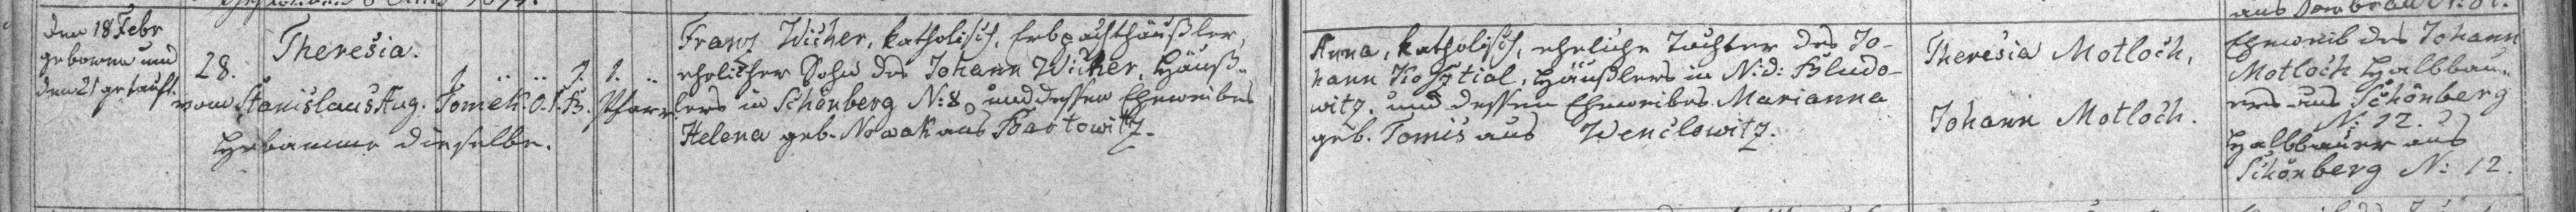 den 18 Febr
geboren und
den 21 getauft.
28.
Theresia.
1. 1.
vom Stanislaus Aug. Tomek. O. S. B. Pfarr.
Hebamme dieselbe.
Franz Wicher, katholisch, Erbpachthäußler,
ehelicher Sohn des Johann Wicher, Häuß-
lers in Schönberg N: 8, und dessen Eheweibes
Helena geb. Nowak aus Bartowitz.
Anna, katholisch, eheliche Tochter des Jo-
hann Kosztial, Häußlers in N:d: Bludo-
witz. und dessen Eheweibes Marianna
geb. Tomis aus Wenclowitz.
Theresia Motloch,
Johann Motloch.
aus Dombrau N: 81.
Eheweib des Johann
Motloch Halbbau-
ers aus Schönberg
N: 12.
Halbbauer aus
Schönberg N: 12.